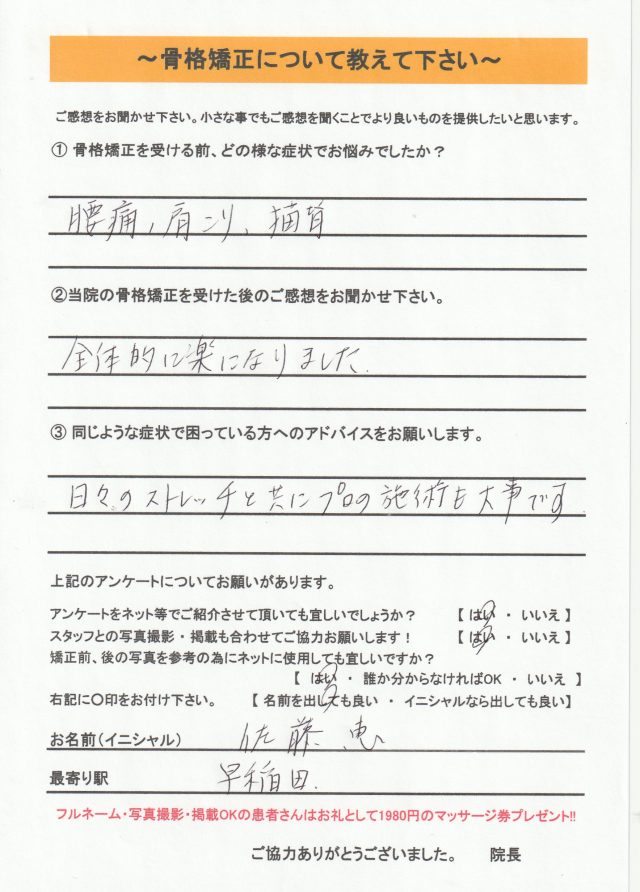 ～骨格矯正について教えて下さい～
ご感想をお聞かせ下さい。小さな事でもご感想を聞くことでより良いものを提供したいと思います。
① 骨格矯正を受ける前、どの様な症状でお悩みでしたか？
腰痛、肩こり、猫背
②当院の骨格矯正を受けた後のご感想をお聞かせ下さい。
全体的に楽になりました.
③ 同じような症状で困っている方へのアドバイスをお願いします。
日々のストレッチと共にプロの施術も大事です.
上記のアンケートについてお願いがあります。
アンケートをネット等でご紹介させて頂いても宜しいでしょうか？ 【 はい ・ いいえ 】
スタッフとの写真撮影・掲載も合わせてご協力お願いします！ 【 はい ・ いいえ 】
矯正前、後の写真を参考の為にネットに使用しても宜しいですか？
【 はい ・ 誰か分からなければOK ・ いいえ 】
右記に〇印をお付け下さい。 【 名前を出しても良い ・ イニシャルなら出しても良い】
お名前（イニシャル） 佐藤 恵
最寄り駅 早稲田.
フルネーム・写真撮影・掲載OKの患者さんはお礼として1980円のマッサージ券プレゼント!!
ご協力ありがとうございました。 院長